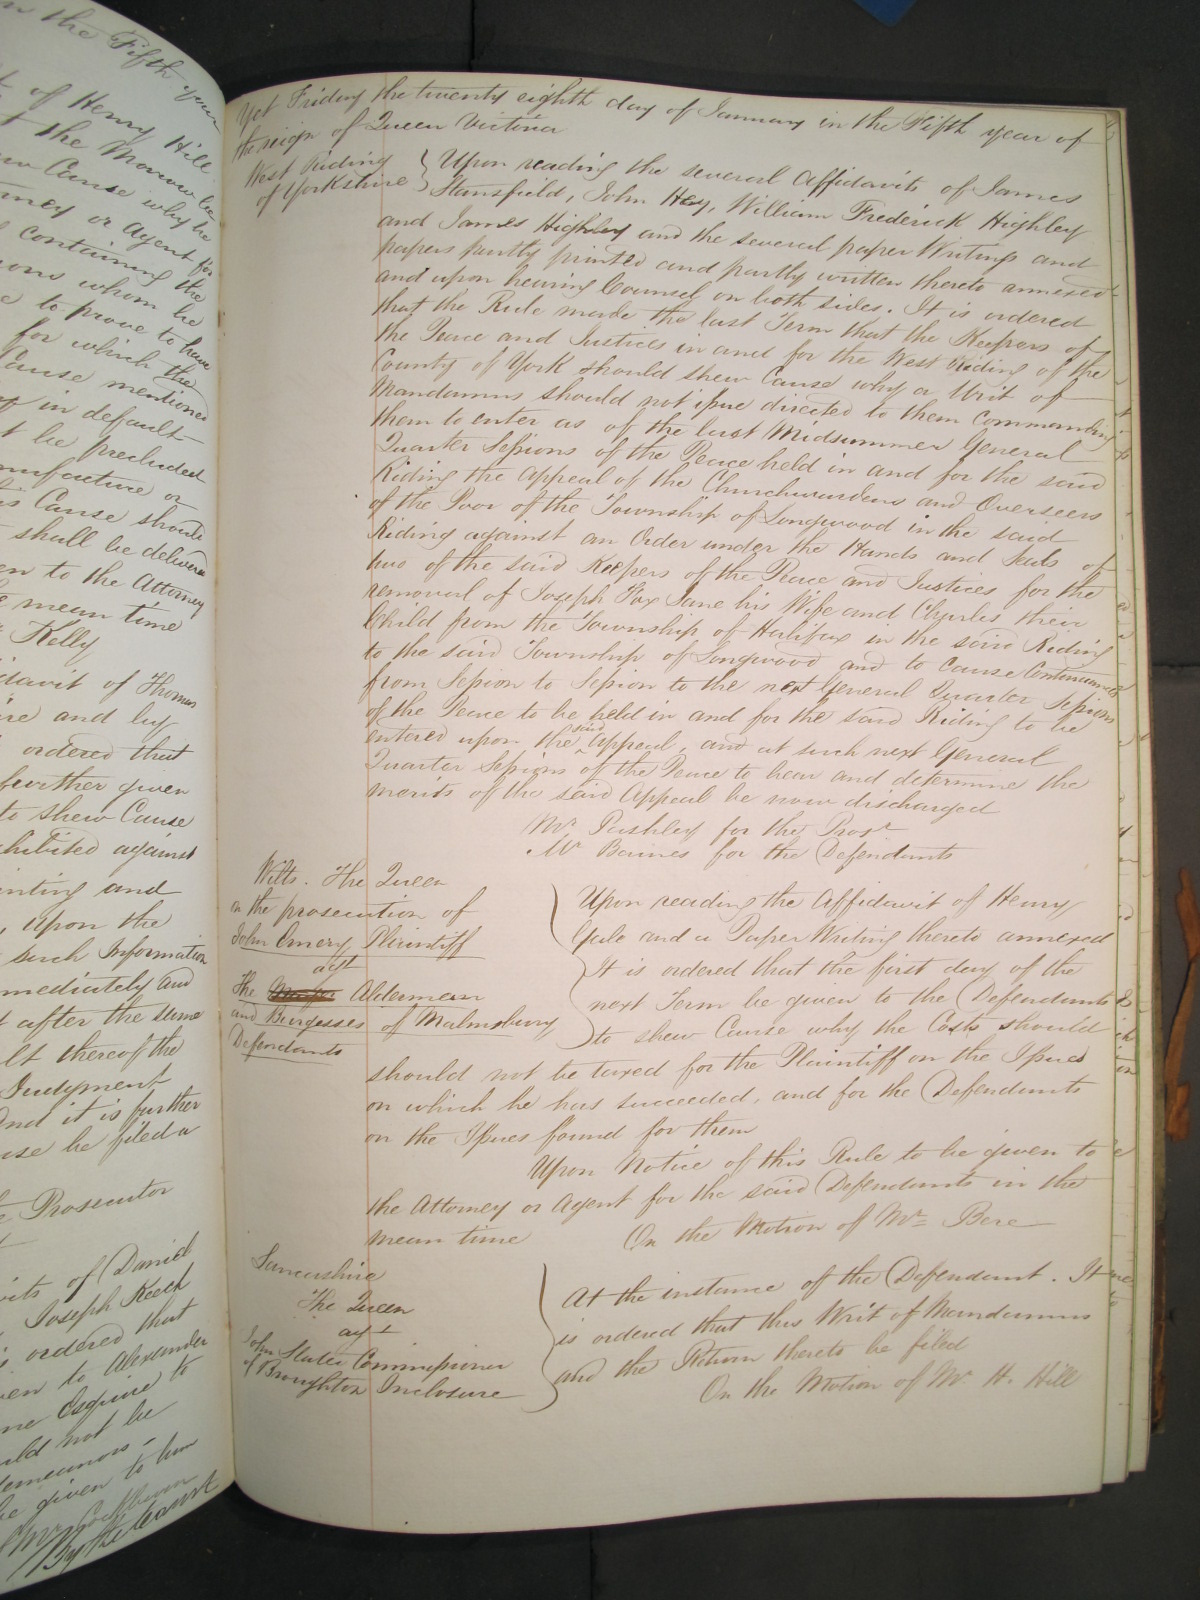 in the Fifth year
of Henry Hill
the Morrow be
Cause why he
Attorney or Agent for
containing the
whom he
to prove to have
for which the
Cause mentioned
in default
be precluded
or
is Cause should
shall be delivered
to the Attorney
mean time
Kelly
of Thomas
and by
ordered that
further given
to shew Cause
exhibited against
and
upon the
such Information
immediately and
after the same
thereof the
Judgment
And it is further
be filed a
Prosecutor
of Daniel
Joseph Keech
ordered that
to Alexander
Esquire to
not be
be given to him
By the Court
Yet Friday the twenty eighth day of January in the Fifth year of
the reign of Queen Victoria
West Riding
of Yorkshire
Upon reading the several Affidavits of James
Stansfield, John Hey, William Frederick Highley
and James Highley and the several paper Writings and
papers partly printed and partly written thereto annexed
and upon hearing Counsel on both sides. It is ordered
that the Rule made the last Term that the Keepers of
the Peace and Justices in and for the West Riding of the
County of York should shew Cause why a Writ of
Mandamus should not issue directed to them commanding
them to enter as of the last Midsummer General
Quarter Sessions of the Peace held in and for the said
Riding the Appeal of the Churchwardens and Overseers
of the Poor of the Township of Longwood in the said
Riding against an Order under the Hands and Seals of
two of the said Keepers of the Peace and Justices for the
removal of Joseph Fox Jane his Wife and Charles their
Child from the Township of Halifax in the said Riding
to the said Township of Longwood and to cause Continuances
from Session to Session to the next General Quarter Sessions
of the Peace to be held in and for the said Riding to be
entered upon the said Appeal, and at such next General
Quarter Sessions of the Peace to hear and determine the
merits of the said Appeal be now discharged
Mr. Pashley for the Prosr.
Mr. Baines for the Defendants
Wilts. The Queen
on the prosecution of
John Emery Plaintiff
agt
The Mayor Aldermen
and Burgesses of Malmsbury
Defendants
Upon reading the Affidavit of Henry
Gale and a Paper Writing thereto annexed
It is ordered that the first day of the
next Term be given to the Defendants
to shew Cause why the Costs should
should not be taxed for the Plaintiff on the Issues
on which he has succeeded, and for the Defendants
on the Issues found for them
Upon Notice of this Rule to be given to
the Attorney or Agent for the said Defendants in the
mean time On the Motion of Mr. Bere
Lancashire
The Queen
agt
John Slater Commissioner
of Broughton Inclosure
At the instance of the Defendant. It
is ordered that this Writ of Mandamus
and the Return thereto be filed
On the Motion of Mr. H. Hill